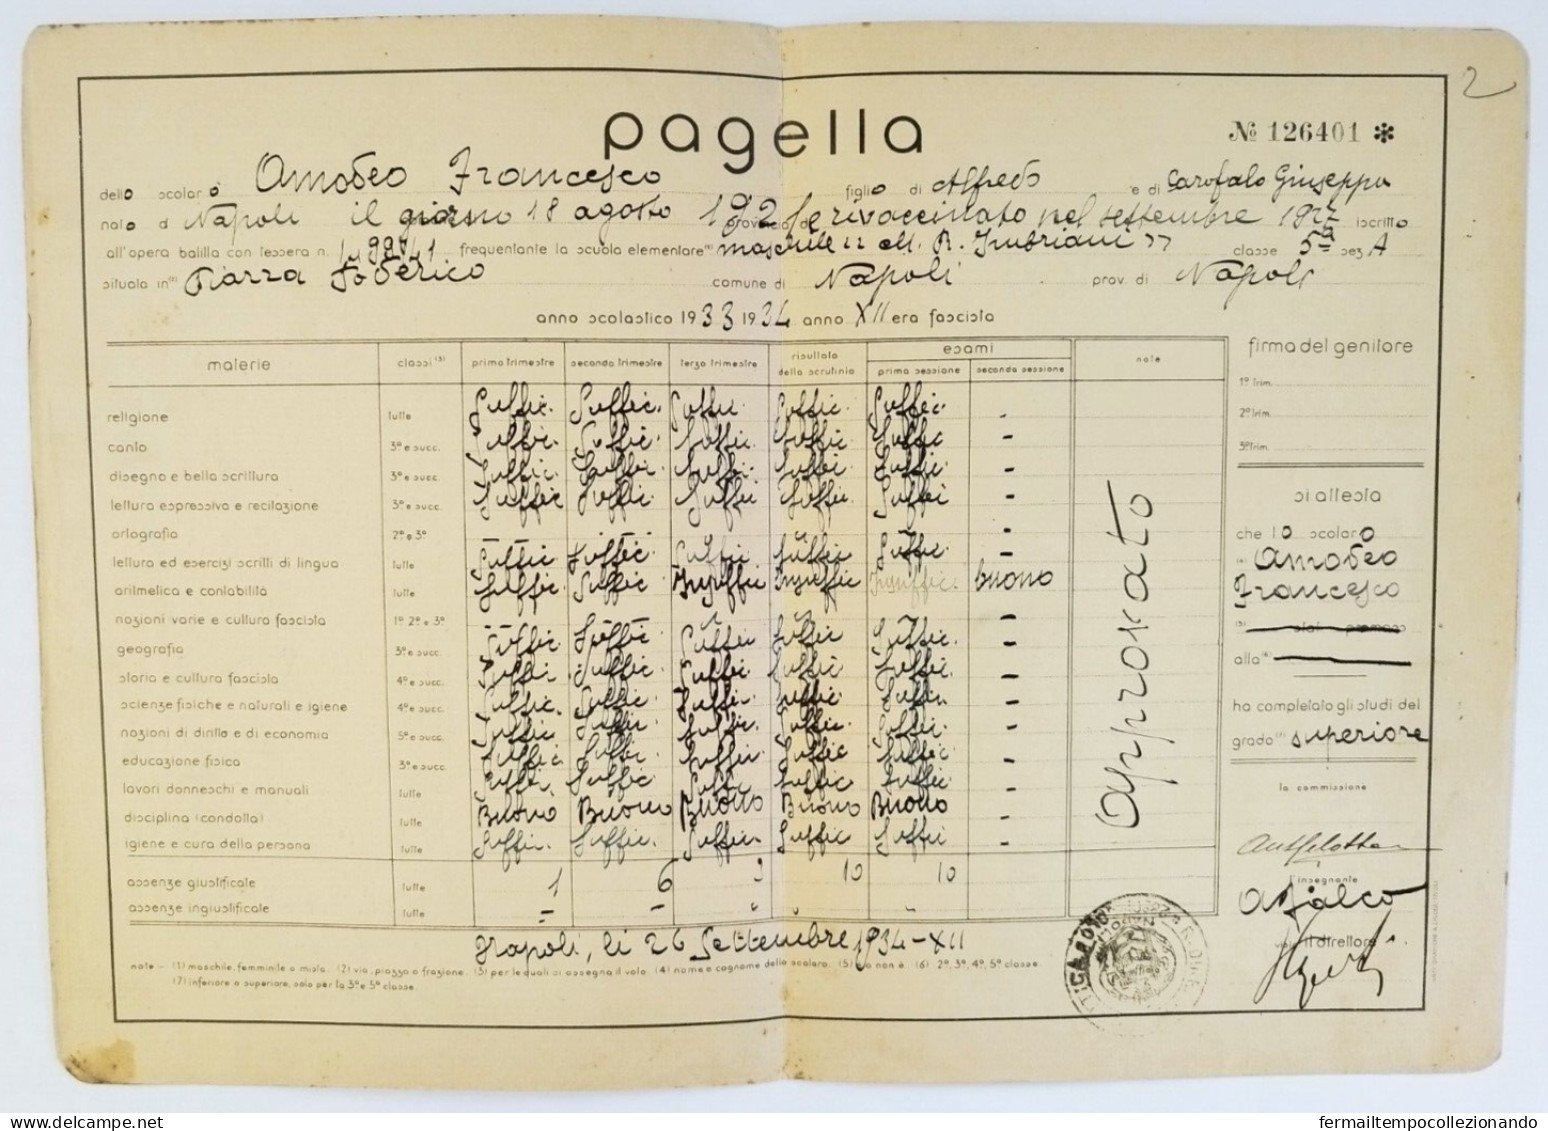 2
pagella
№ 126401 ✻
dello scolaro Amodeo Francesco figlio di Alfredo e di Garofalo Giuseppa
nato a Napoli il giorno 18 agosto 192 provincia di e rivaccinato nel settembre 1927 iscritto
all'opera balilla con tessera n. frequentante la scuola elementare (1) maschile "all. R. Imbriani" classe 5ª sez A
situata in (2) Piazza Poderico comune di Napoli prov. di Napoli
anno scolastico 1933 1934 anno XII era fascista
materie classi (3) primo trimestre secondo trimestre terzo trimestre risultato dello scrutinio esami prima sessione seconda sessione note
religione tutte Suffic. Suffic. Suffic. Suffic. Suffic. -
canto 3ª e succ. Suffic. Suffic. Suffic. Suffic. Suffic -
disegno e bella scrittura 3ª e succ. Suffic. Suffic. Suffic. Suffic. Suffic. -
lettura espressiva e recitazione 3ª e succ. Suffic Suffic Suffi Suffic Suffi -
ortografia 2ª e 3ª - - - - - -
lettura ed esercizi scritti di lingua tutte Suffic. Suffic. Suffic Suffic Suffic. -
aritmetica e contabilità tutte Suffic. Suffic. Insuffic Insuffic Insuffic. buono
nozioni varie e cultura fascista 1ª 2ª e 3ª - - - - - -
geografia 3ª e succ. Suffic. Suffic. Suffic Suffic Suffic. -
storia e cultura fascista 4ª e succ. Suffic Suffic. Suffic. Suffic Suffic. -
scienze fisiche e naturali e igiene 4ª e succ. Suffic. Suffic. Suffic. Suffic Suffic -
nozioni di diritto e di economia 5ª e succ. Suffic. Suffic. Suffic. Suffic. Suffic. -
educazione fisica 3ª e succ. Suffic. Suffic. Suffic. Suffic Suffic. -
lavori donneschi e manuali tutte Suffic. Suffic. Suffic Suffic Suffic. -
disciplina (condotta) tutte Buono Buono Buono Buono Buono
igiene e cura della persona tutte Suffic. Suffic. Suffic. Suffic Suffi
assenze giustificate tutte 1 6 3 10 10
assenze ingiustificate tutte - - " " "
approvato
Napoli, li 26 Settembre 1934-XII
note - (1) maschile, femminile o mista. (2) via, piazza o frazione. (3) per le quali si assegna il voto. (4) nome e cognome dello scolaro. (5) è o non è (6) 2ª, 3ª, 4ª, 5ª classe.
(7) inferiore o superiore, solo per la 3ª e 5ª classe.
firma del genitore
1º trim.
2º trim.
3º trim.
si attesta
che lo scolaro
(4) Amodeo
Francesco
(5) stat promoss
alla (6)
ha completato gli studi del
grado (7) superiore
la commissione
l'insegnante
A. Falco
visto il direttore
NAPOLI
fermailtempocollezionando